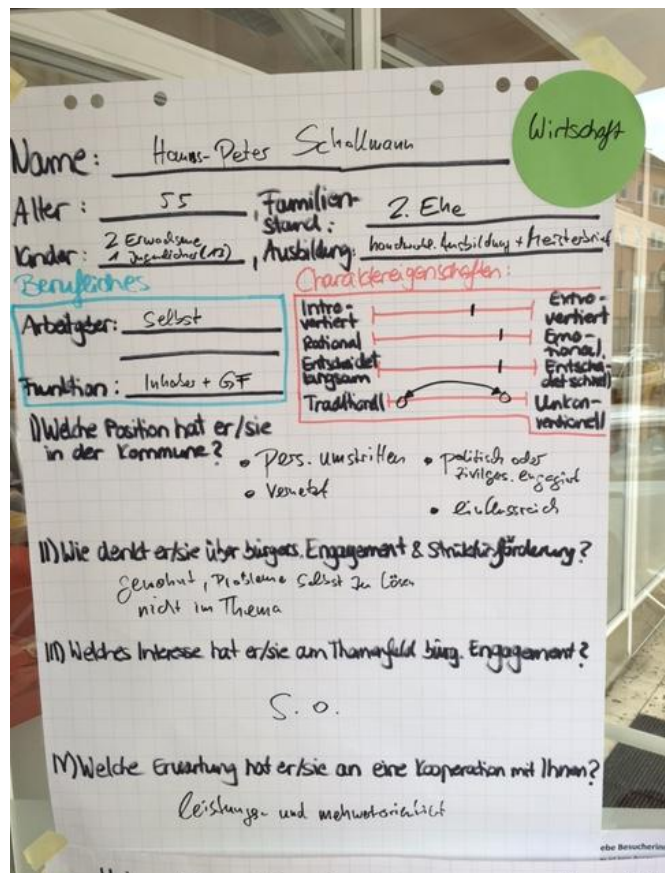 Wirtschaft
Name: Hanns-Peter Schollmann
Alter: 55, Familien-
stand: 2. Ehe
Kinder: 2 Erwachsene
1 Jugendlicher (12), Ausbildung: handwerkl. Ausbildung + Meisterbrief
Berufliches
Arbeitgeber: Selbst
Funktion: Inhaber + GF
Charaktereigenschaften:
Intro-
vertiert
Extro-
vertiert
Rational
Emo-
tional
Entscheidet
langsam
Entschei-
det schnell
Traditionell
Unkon-
ventionell
I) Welche Position hat er/sie
in der Kommune?
• Pers. umstritten
• vernetzt
• politisch oder
zivilges. engagiert
• einflussreich
II) Wie denkt er/sie über bürgers. Engagement & Strukturförderung?
gewohnt, Probleme selbst zu lösen
nicht im Thema
III) Welches Interesse hat er/sie am Themenfeld bürg. Engagement?
S. o.
IV) Welche Erwartung hat er/sie an eine Kooperation mit Ihnen?
leistungs- und mehrwertorientiert
ebe Besucherinn